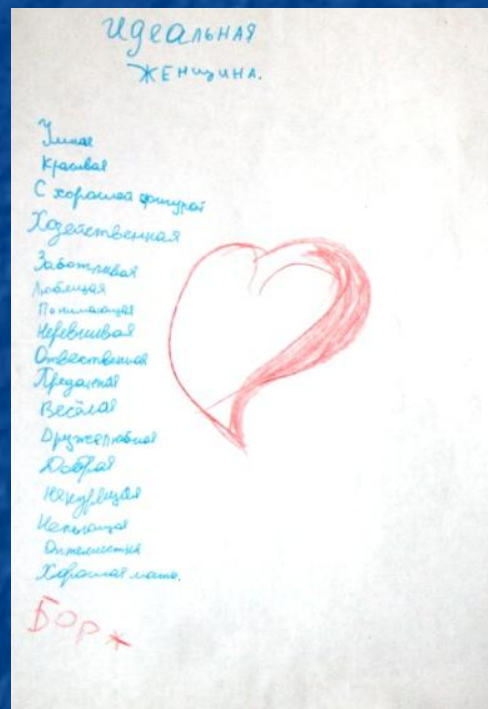 Идеальная
женщина.
Умная
Красивая
С хорошей фигурой
Хозейственная
Заботливая
Любящая
Понимающая
Неревнивая
Отвественная
Преданная
Весёлая
Дружелюбная
Добрая
Некурящая
Непьющая
Оптемистка
Хорошая мать.
Бор*